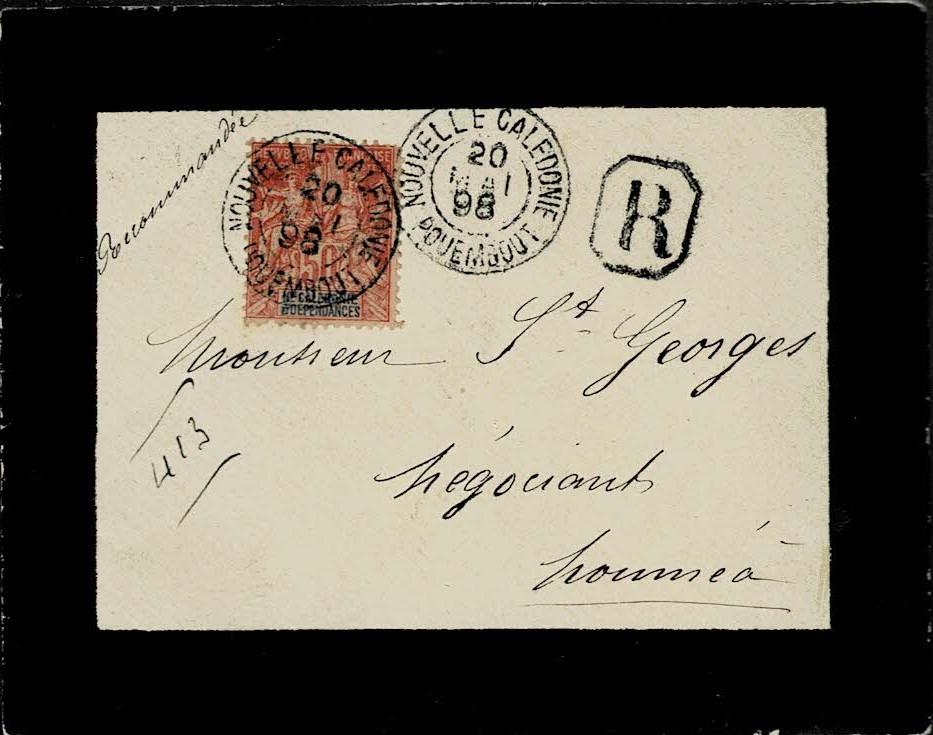 Recommandée
NOUVELLE CALEDONIE
20
MAI
98
POUEMBOUT
50
Nlle CALEDONIE
ET DEPENDANCES
NOUVELLE CALEDONIE
20
MAI
98
POUEMBOUT
R
Monsieur St Georges
413
Négociant
Nouméa